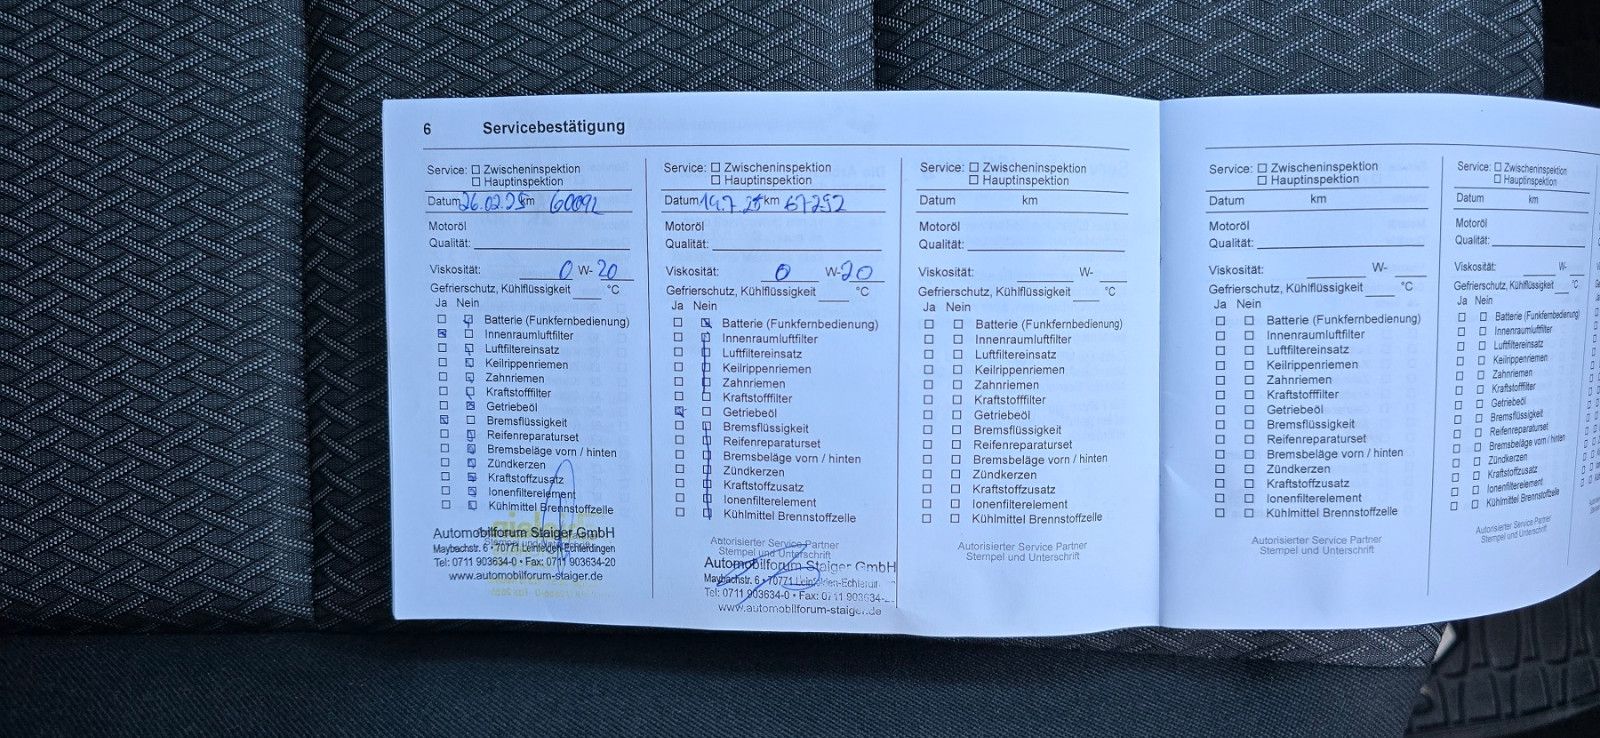 6 Servicebestätigung
Service: Zwischeninspektion
Hauptinspektion
Datum 26.02.25 km 60092
Motoröl
Qualität:
Viskosität: 0 W- 20
Gefrierschutz, Kühlflüssigkeit °C
Ja Nein
Batterie (Funkfernbedienung)
Innenraumluftfilter
Luftfiltereinsatz
Keilrippenriemen
Zahnriemen
Kraftstofffilter
Getriebeöl
Bremsflüssigkeit
Reifenreparaturset
Bremsbeläge vorn / hinten
Zündkerzen
Kraftstoffzusatz
Ionenfilterelement
Kühlmittel Brennstoffzelle
Automobilforum Staiger GmbH
Stempel und Unterschrift
Maybachstr. 6 • 70771 Leinfelden-Echterdingen
Tel: 0711 903634-0 • Fax: 0711 903634-20
www.automobilforum-staiger.de
Service: Zwischeninspektion
Hauptinspektion
Datum 14.7.25 km 67252
Motoröl
Qualität:
Viskosität: 0 W- 20
Gefrierschutz, Kühlflüssigkeit °C
Ja Nein
Batterie (Funkfernbedienung)
Innenraumluftfilter
Luftfiltereinsatz
Keilrippenriemen
Zahnriemen
Kraftstofffilter
Getriebeöl
Bremsflüssigkeit
Reifenreparaturset
Bremsbeläge vorn / hinten
Zündkerzen
Kraftstoffzusatz
Ionenfilterelement
Kühlmittel Brennstoffzelle
Autorisierter Service Partner
Stempel und Unterschrift
Automobilforum Staiger GmbH
Maybachstr. 6 • 70771
Tel: 0711 903634-0 • Fax: 0711 903634-
www.automobilforum-staiger.de
Service: Zwischeninspektion
Hauptinspektion
Datum km
Motoröl
Qualität:
Viskosität: W-
Gefrierschutz, Kühlflüssigkeit °C
Ja Nein
Batterie (Funkfernbedienung)
Innenraumluftfilter
Luftfiltereinsatz
Keilrippenriemen
Zahnriemen
Kraftstofffilter
Getriebeöl
Bremsflüssigkeit
Reifenreparaturset
Bremsbeläge vorn / hinten
Zündkerzen
Kraftstoffzusatz
Ionenfilterelement
Kühlmittel Brennstoffzelle
Autorisierter Service Partner
Stempel und Unterschrift
Service: Zwischeninspektion
Hauptinspektion
Datum km
Motoröl
Qualität:
Viskosität: W-
Gefrierschutz, Kühlflüssigkeit °C
Ja Nein
Batterie (Funkfernbedienung)
Innenraumluftfilter
Luftfiltereinsatz
Keilrippenriemen
Zahnriemen
Kraftstofffilter
Getriebeöl
Bremsflüssigkeit
Reifenreparaturset
Bremsbeläge vorn / hinten
Zündkerzen
Kraftstoffzusatz
Ionenfilterelement
Kühlmittel Brennstoffzelle
Autorisierter Service Partner
Stempel und Unterschrift
Service: Zwischeninspektion
Hauptinspektion
Datum km
Motoröl
Qualität:
Viskosität: W-
Gefrierschutz, Kühlflüssigkeit °C
Ja Nein
Batterie (Funkfernbedienung)
Innenraumluftfilter
Luftfiltereinsatz
Keilrippenriemen
Zahnriemen
Kraftstofffilter
Getriebeöl
Bremsflüssigkeit
Reifenreparaturset
Bremsbeläge vorn / hinten
Zündkerzen
Kraftstoffzusatz
Ionenfilterelement
Kühlmittel Brennstoffzelle
Autorisierter Service Partner
Stempel und Unterschrift